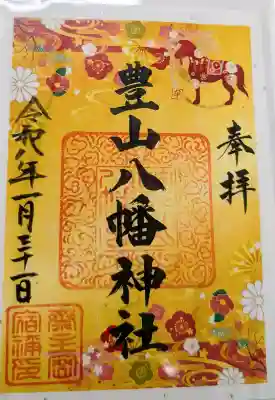 奉拝
豊山八幡神社
令和八年一月三十一日